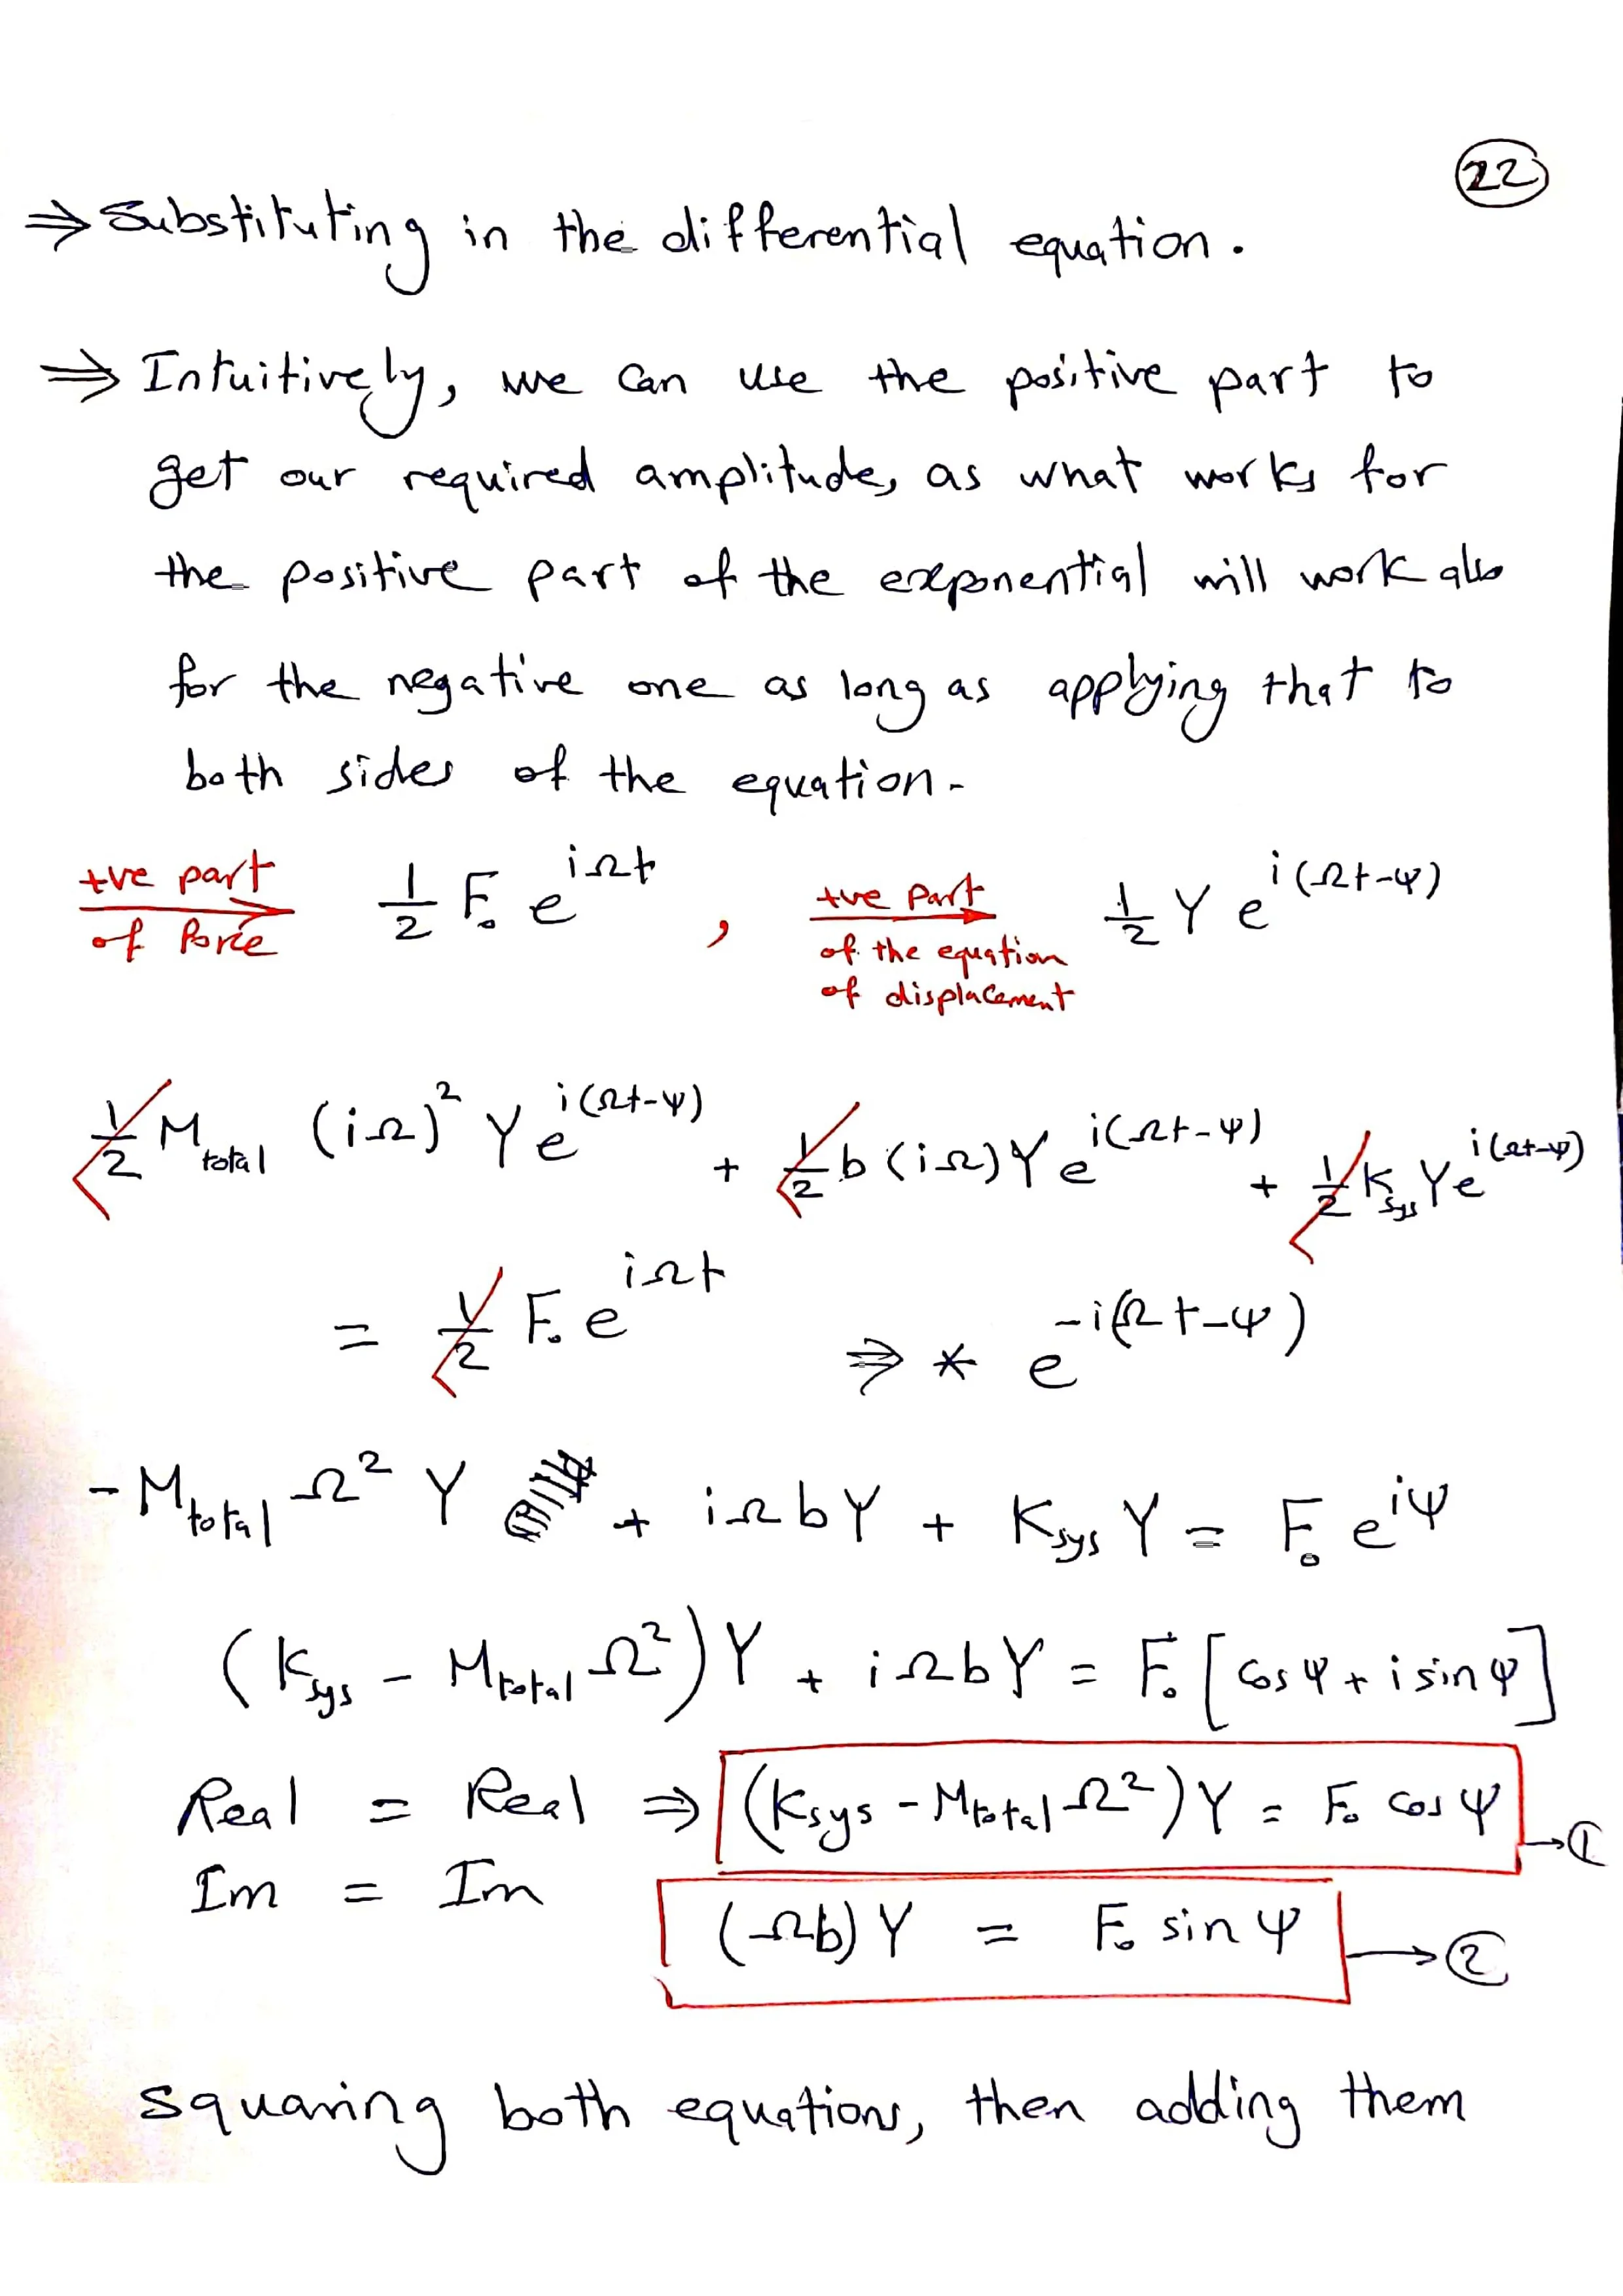 22
⇒ Substituting in the differential equation.
⇒ Intuitively, we can use the positive part to
get our required amplitude, as what works for
the positive part of the exponential will work also
for the negative one as long as applying that to
both sides of the equation.
+ve part of force → 1/2 F₀ e^{iΩt} , +ve part of the equation of displacement → 1/2 Y e^{i(Ωt-ψ)}
1/2 M_total (iΩ)² Y e^{i(Ωt-ψ)} + 1/2 b (iΩ) Y e^{i(Ωt-ψ)} + 1/2 K_sys Y e^{i(Ωt-ψ)}
= 1/2 F₀ e^{iΩt} ⇒ * e^{-i(Ωt-ψ)}
- M_total Ω² Y + iΩbY + K_sys Y = F₀ e^{iψ}
(K_sys - M_total Ω²) Y + iΩbY = F₀ [cos ψ + i sin ψ]
Real = Real ⇒ (K_sys - M_total Ω²) Y = F₀ cos ψ → ①
Im = Im (Ωb) Y = F₀ sin ψ → ②
squaring both equations, then adding them